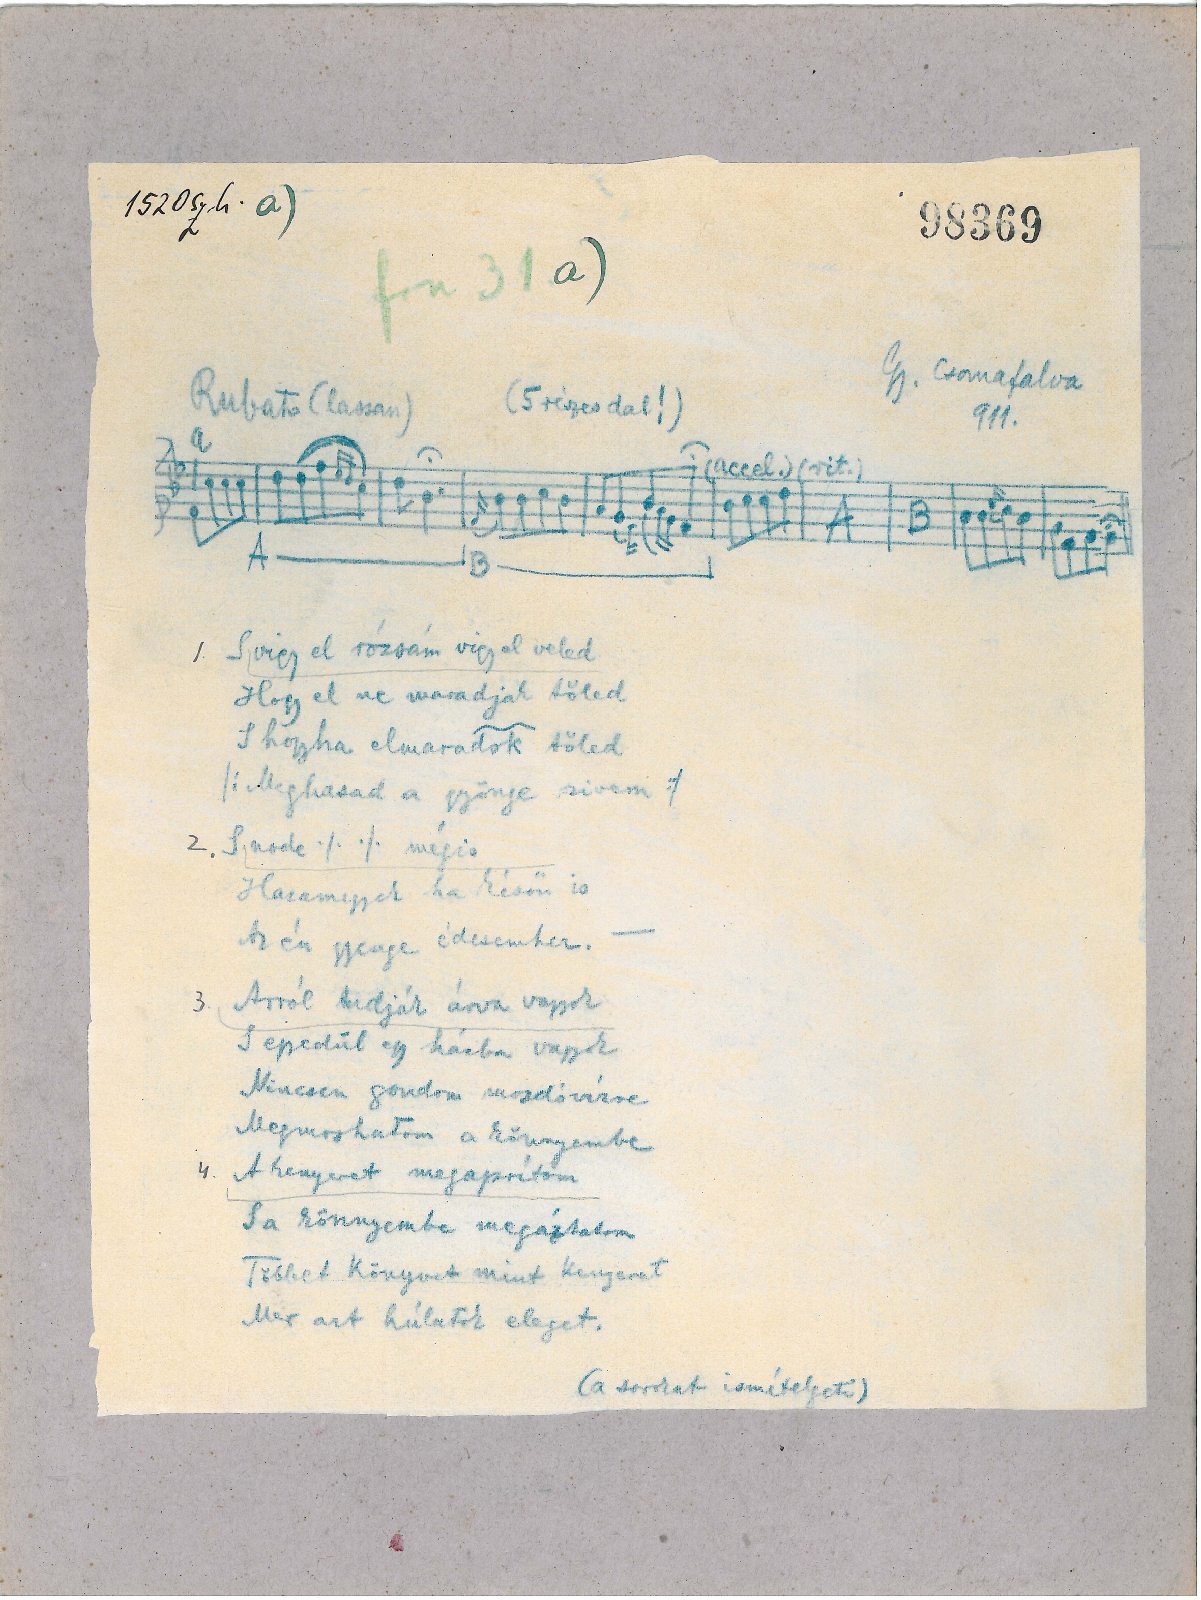 1520 Szh. a)
98369
fon 31 a)
Gy. Csomafalva
911.
Rubato (lassan)
(5 részes dal!)
a
(accel.) (rit.)
A B
A B
1. S vigy el rózsám vigy el veled
Hogy el ne maradjak tőled
S hogyha elmaradok tőled
/: Meghasad a gyönge szivem :/
2. S node ·/· ·/· mégis
Hazamegyek ha késön is
Az én gyenge édesemhez. —
3. Arról tudják árva vagyok
S egyedűl egy házba vagyok
Nincsen gondom mosdóvízre
Megmoshatom a könnyembe
4. A kenyeret megaprítom
S a könnyembe megáztatom
Többet könyvet mint kenyeret
Mer azt húlatok eleget.
(a sorokat ismételgeti)